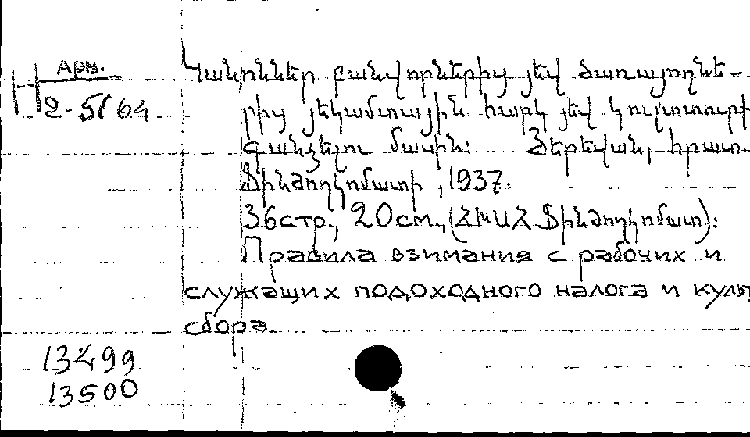 Арм.
2-51/64
Կանոններ բանվորներից յեվ ծառայողնե-
րից յեկամտային հարկ յեվ կուլտտուրք
գանձելու մասին: Յերեվան, հրատ.
Ֆինժողկոմատի, 1937.
36стр., 20см., (ՀԽՍՀ Ֆինժողկոմատ):
Правила взимания с рабочих и
служащих подоходного налога и куль
сбора
13499
13500